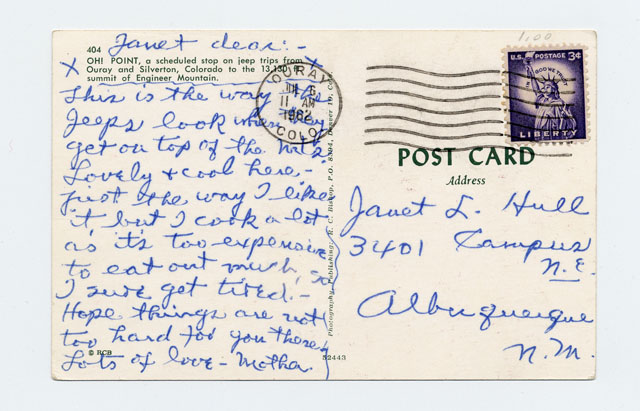 1.00
Janet dear:-
404
OH! POINT, a scheduled stop on jeep trips from
Ouray and Silverton, Colorado to the 13,130 ft.
summit of Engineer Mountain.
This is the way the
Jeeps look when they
get on top of the mt's
Lovely & cool here -
just the way I like
it but I cook a lot
as its too expensive
to eat out much, so
I sure get tired.-
Hope things are not
too hard for you there,
Lots of love - Mother
© RCB
OURAY
11 AM
1962
COLO
Photography, Publishing: R. C. Bishop, P.O. 8394, Denver 10, Co
52443
U.S. POSTAGE 3¢
IN GOD WE TRUST
LIBERTY
POST CARD
Address
Janet L. Hull
3401 Campus
N.E.
Albuquerque
N.M.